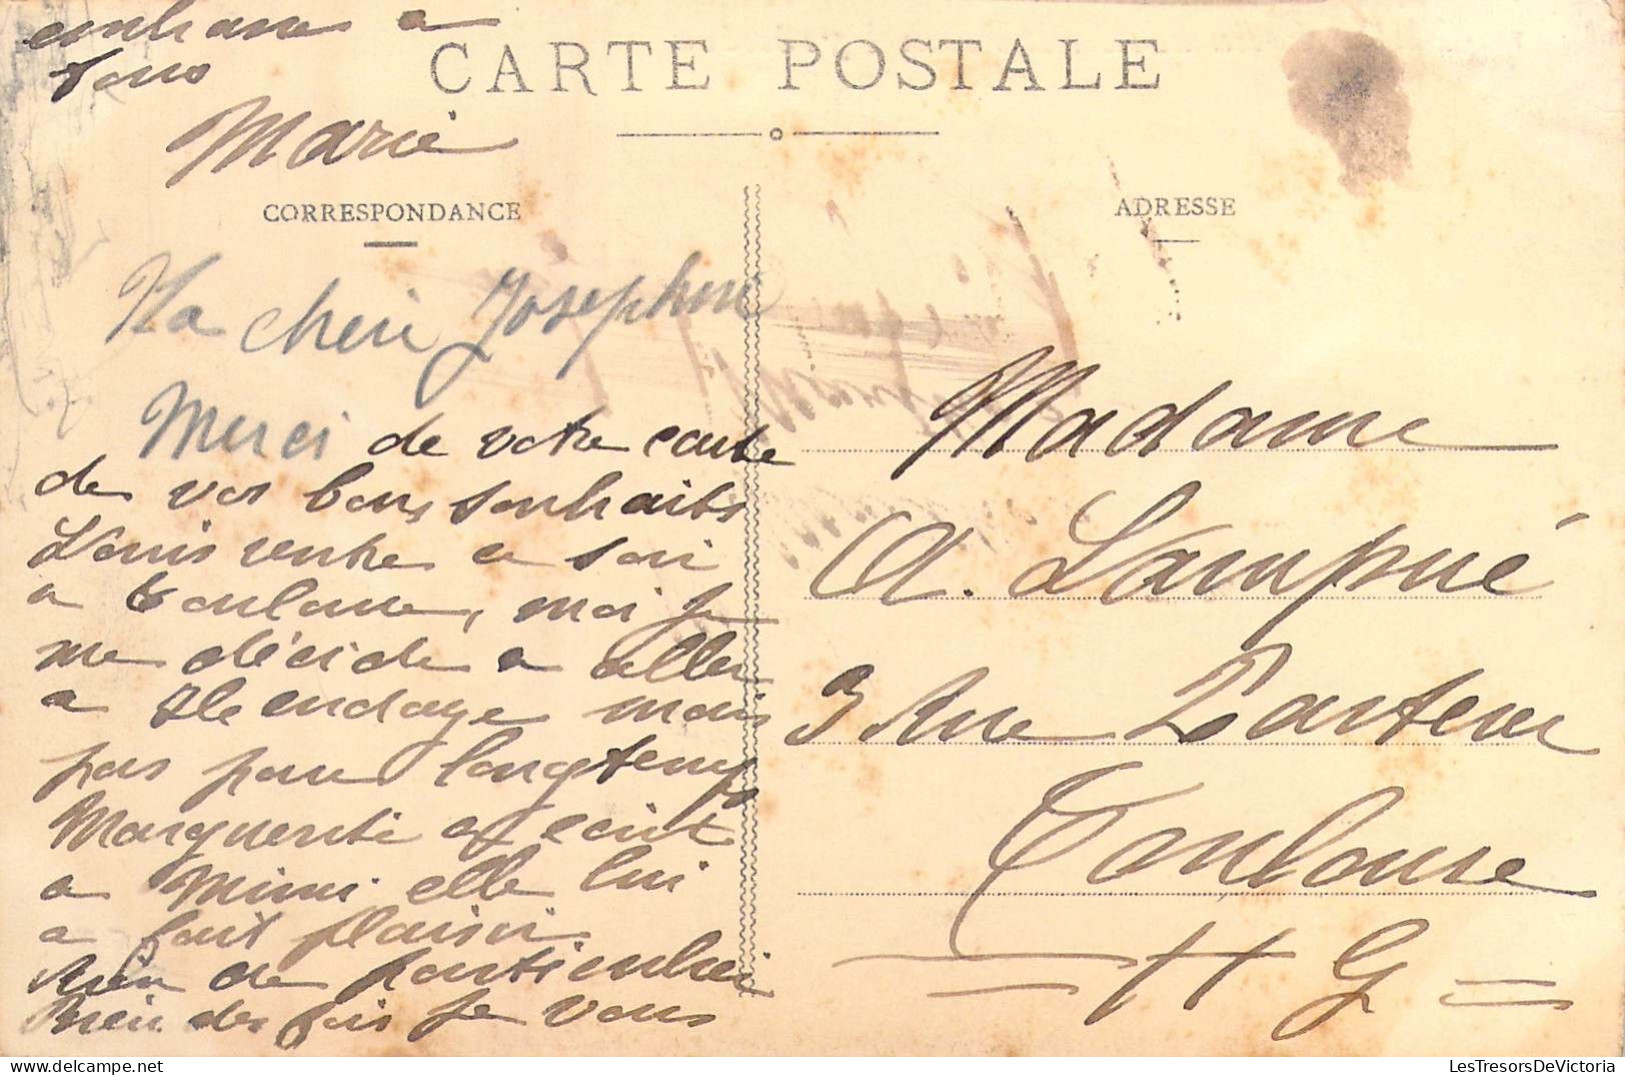 CARTE POSTALE
CORRESPONDANCE
Ma cheri Josephine
Merci de votre carte
de vos bons souhaits
Louis rentre ce soir
a Toulouse, moi je
me décide a aller
a Hendaye mais
pas pour longtemps
Marguerite a écrit
a Mimi elle lui
a fait plaisir.
Rien de particulier
Bien des fois je vous
embrasse a
tous
Marie
ADRESSE
Madame
A. Lampué
3 Rue Pasteur
Toulouse
H G
LesTresorsDeVictoria (Delcampe.net)